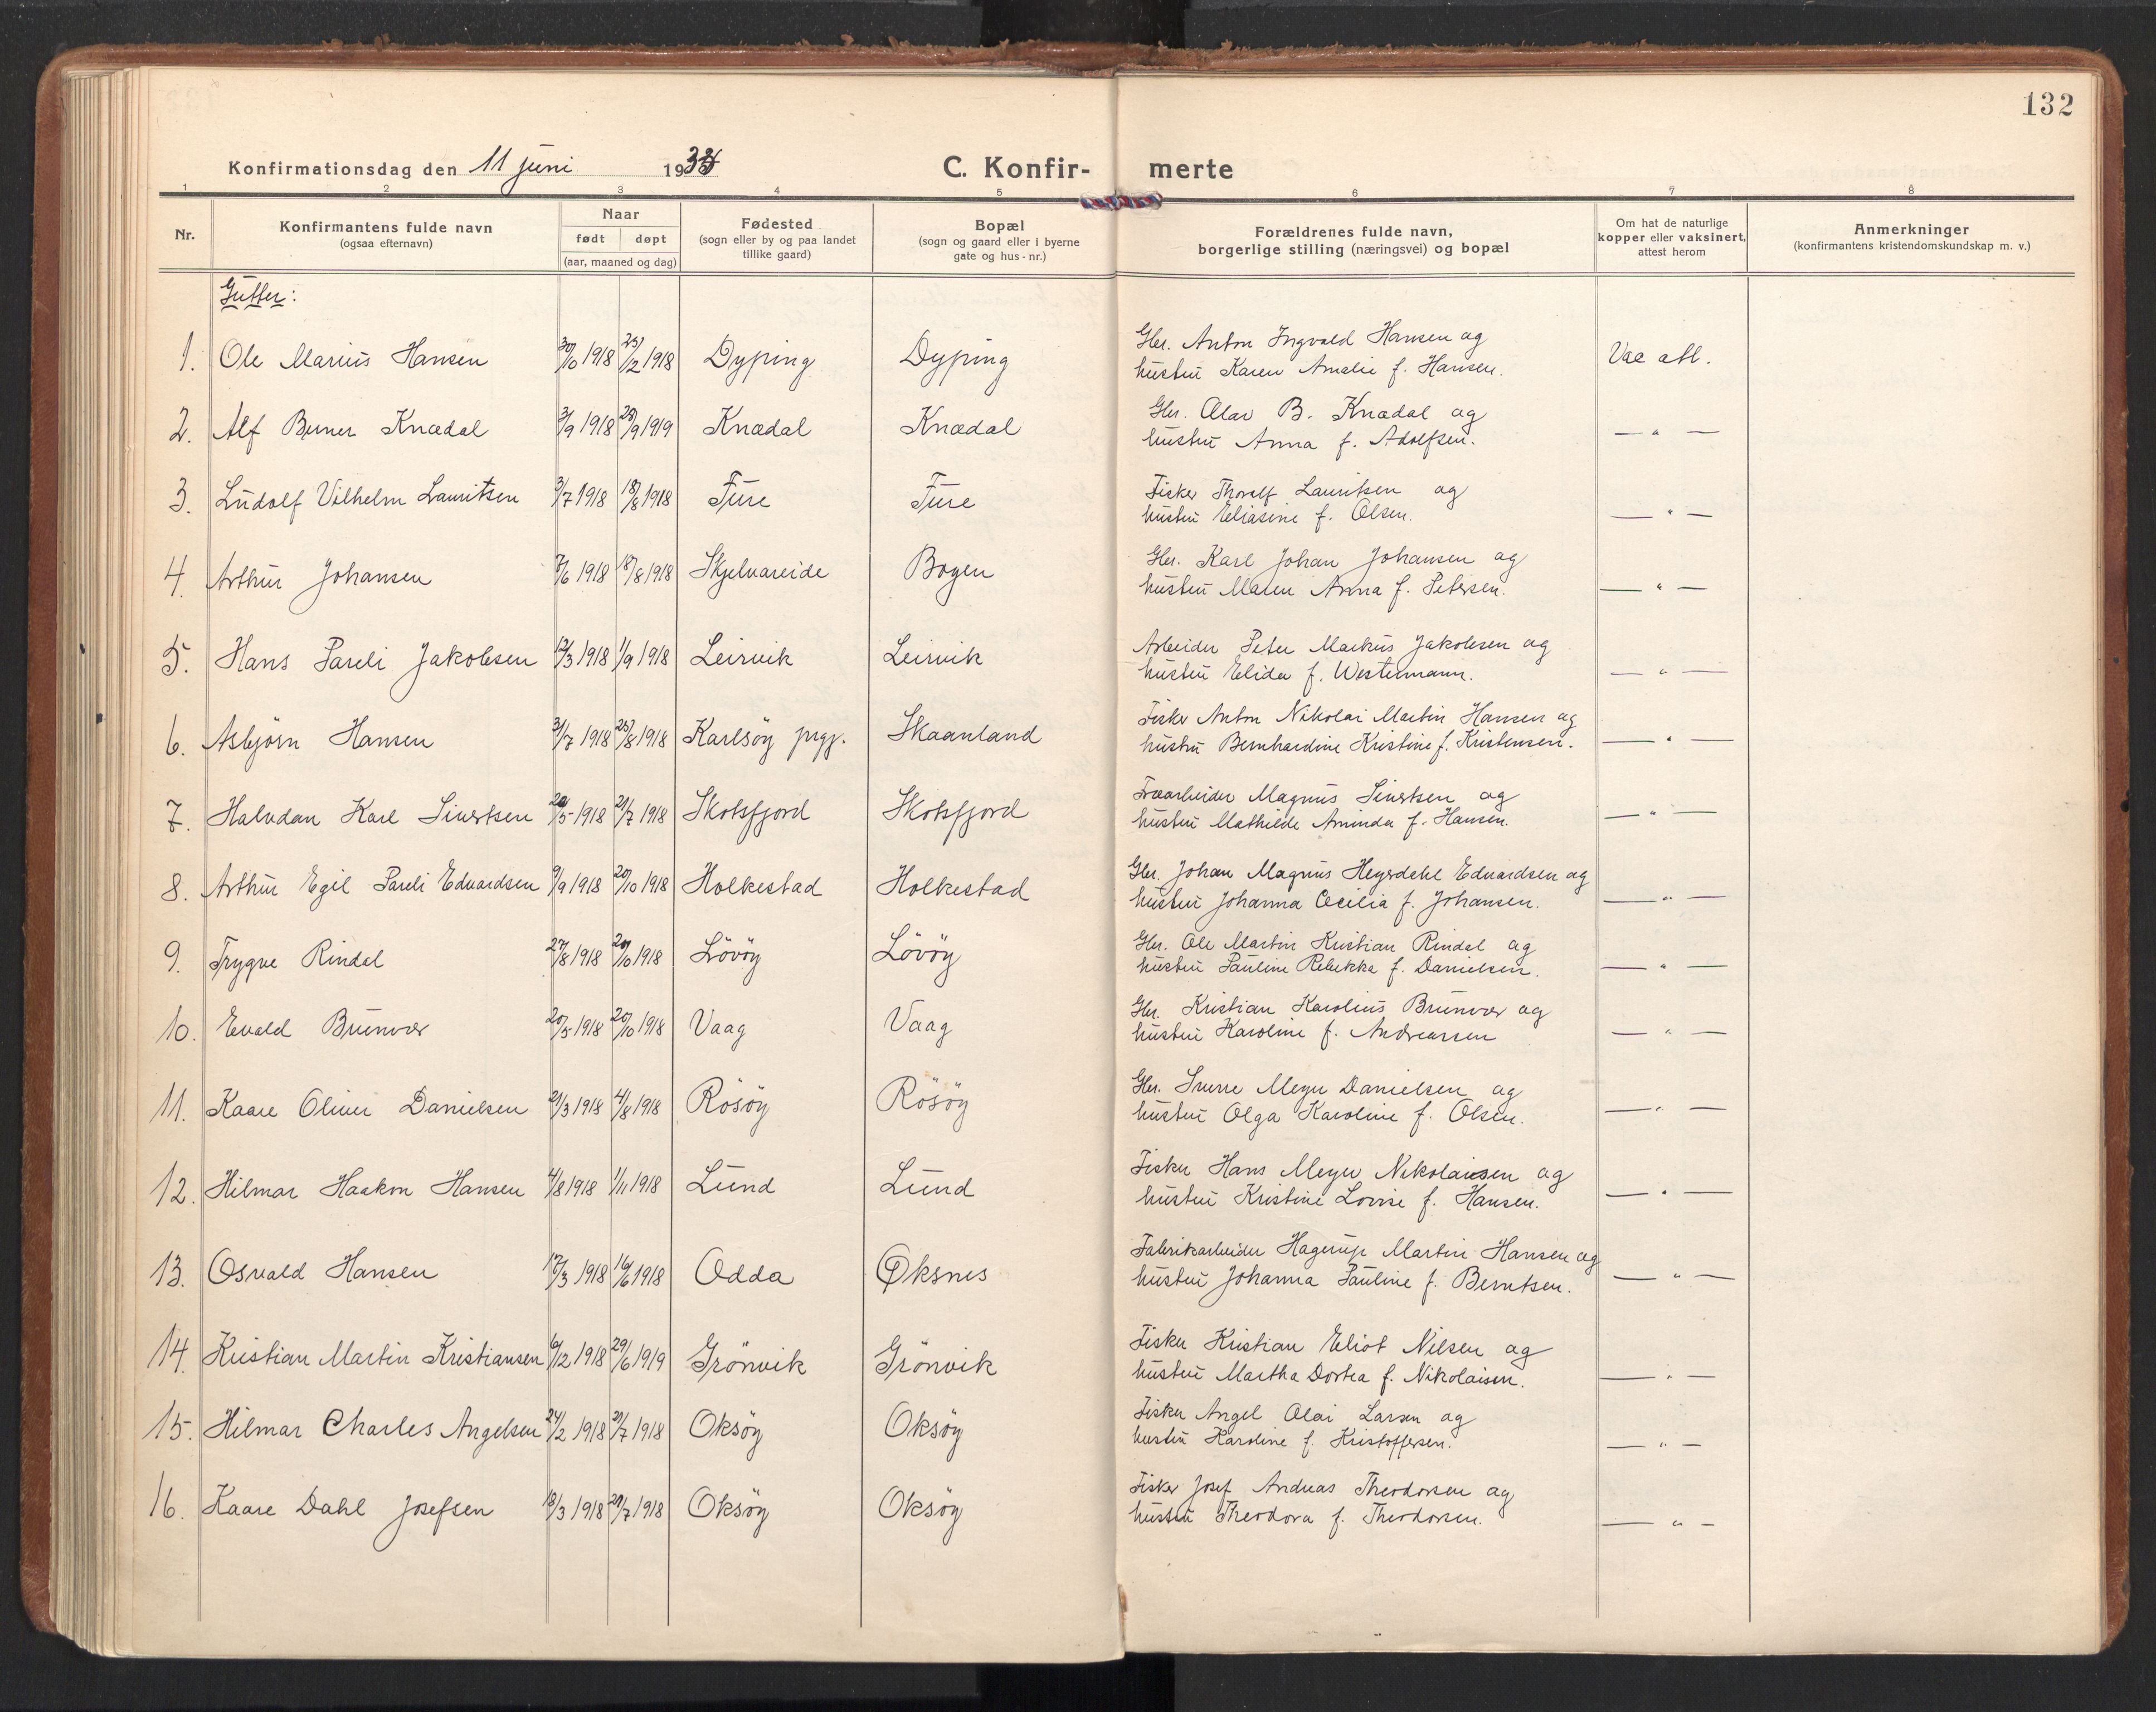 132
Konfirmationsdag den 11 juni 1933
C. Konfir- merte
1 2 3 4 5 6 7 8
Nr.
Konfirmantens fulde navn
(ogsaa efternavn)
Naar
født døpt
(aar, maaned og dag)
Fødested
(sogn eller by og paa landet
tillike gaard)
Bopæl
(sogn og gaard eller i byerne
gate og hus-nr.)
Forældrenes fulde navn,
borgerlige stilling (næringsvei) og bopæl
Om hat de naturlige
kopper eller vaksinert,
attest herom
Anmerkninger
(konfirmantens kristendomskundskap m. v.)
Gutter:
1. Ole Marius Hansen 30/10 1918 25/12 1918 Dyping Dyping Gbr. Anton Ingvald Hansen og
hustru Karen Amalie f. Hansen. Vac att.
2. Alf Berner Knædal 3/9 1918 28/9 1919 Knædal Knædal Gbr. Olav B. Knædal og
hustru Anna f. Adolfsen. — " —
3. Ludolf Vilhelm Lauritsen 3/7 1918 18/8 1918 Fure Fure Fisker Thoralf Lauritsen og
hustru Eliasine f. Olsen. — " —
4. Arthur Johansen 7/6 1918 18/8 1918 Skjelvareide Bogen Gbr. Karl Johan Johansen og
hustru Maren Anna f. Petersen. — " —
5. Hans Pareli Jakobsen 12/3 1918 1/9 1918 Leirvik Leirvik Arbeider Peter Markus Jakobsen og
hustru Elida f. Westermann. — " —
6. Asbjörn Hansen 31/7 1918 25/8 1918 Karlsöy prgj. Skaanland Fisker Anton Nikolai Martin Hansen og
hustru Bernhardine Kristine f. Kristensen. — " —
7. Halvdan Karl Sivertsen /5 1918 21/7 1918 Skotsfjord Skotsfjord Træarbeider Magnus Sivertsen og
hustru Mathilde Aminda f. Hansen. — " —
8. Arthur Egil Pareli Edvardsen 9/9 1918 20/10 1918 Holkestad Holkestad Gbr. Johan Magnus Heyerdahl Edvardsen og
hustru Johanna Cecilia f. Johansen. — " —
9. Trygve Rindal 27/8 1918 20/10 1918 Lövöy Lövöy Gbr. Ole Martin Kristian Rindal og
hustru Pauline Rebekka f. Danielsen. — " —
10. Evald Brunvær 20/5 1918 20/10 1918 Vaag Vaag Gbr. Kristian Karolius Brunvær og
hustru Karoline f. Andreassen — " —
11. Kaare Oliver Danielsen 21/3 1918 4/8 1918 Rösöy Rösöy Gbr. Sverre Meyer Danielsen og
hustru Olga Karoline f. Olsen. — " —
12. Hilmar Haakon Hansen 4/8 1918 1/11 1918 Lund Lund Fisker Hans Meyer Nikolaisen og
hustru Kristine Lovise f. Hansen. — " —
13. Osvald Hansen 17/3 1918 16/6 1918 Odda Øksnes Fabrikarbeider Hagerup Martin Hansen og
hustru Johanna Pauline f. Berntsen. — " —
14. Kristian Martin Kristiansen 6/12 1918 29/6 1919 Grönvik Grönvik Fisker Kristian Eliot Nilsen og
hustru Martha Dortea f. Nikolaisen. — " —
15. Hilmar Charles Angelsen 24/2 1918 21/7 1918 Oksöy Oksöy Fisker Angel Olai Larsen og
hustru Karoline f. Kristoffersen. — " —
16. Kaare Dahl Josefsen 18/3 1918 21/7 1918 Oksöy Oksöy Fisker Josef Andreas Theodorsen og
hustru Theodora f. Theodorsen. — " —